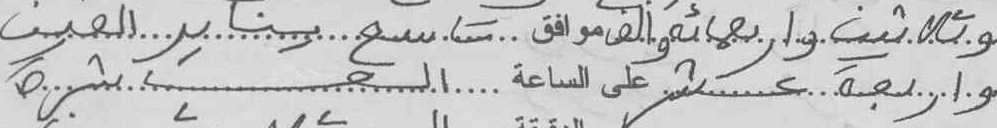 و ثلاثين وأربعمائة وألف موافق تاسع يناير ألفين
وأربعة عشر على الساعة الحادية عشرة